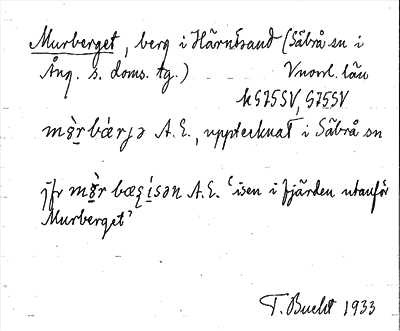 Murberget, berg i Härnösand (Säbrå sn i
Ång. s. doms. tg.) Vnorrl. län
k G75SV, G75SV
mö̀r bǽrjə A.E., upptecknat i Säbrå sn
jfr mö̀r bæʒísən A.E. 'isen i fjärden utanför
Murberget'
T. Bucht 1933